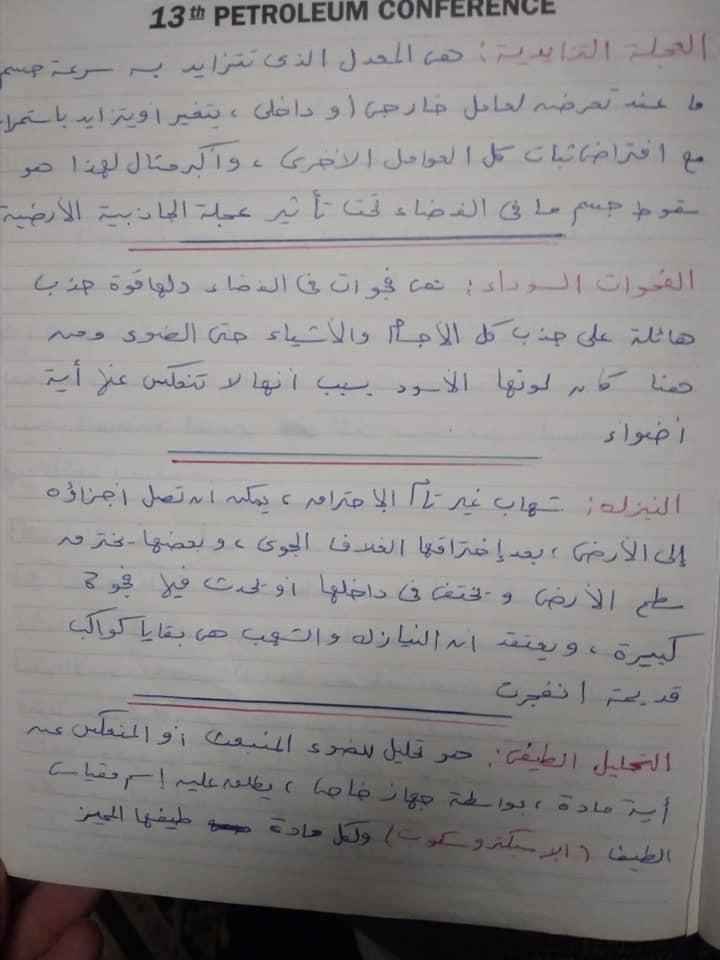 13th PETROLEUM CONFERENCE
العجلة التزايدية: هى المعدل الذى تتزايد به سرعة جسم
ما عند تعرضه لعامل خارجى (أو داخلى، يتغير أو يتزايد باستمرار
مع افتراض ثبات كل العوامل الأخرى، وأكبر مثال لهذا هو
سقوط جسم ما فى الفضاء تحت تأثير عجلة الجاذبية الأرضية
الفجوات السوداء: هى فجوات فى الفضاء ولها قوة جذب
هائلة على جذب كل الأجسام والأشياء حتى الضوء ومن
هنا كان لونها الأسود بسبب أنها لا تنعكس عنها أية
أضواء
النيزك: شهاب غير تام الإحتراق، يمكن أن تصل أجزاؤه
إلى الأرض، بعد إختراقها الغلاف الجوى، وبعضها يخترق
سطح الأرض ويختفى فى داخلها أو يحدث فيها فجوة
كبيرة، ويعتقد أن النيازك والشهب هى بقايا كواكب
قديمة انفجرت
التحليل الطيفى: هو تحليل للضوء المنبعث أو المنعكس عن
أية مادة، بواسطة جهاز خاص، يطلق عليه إسم مقياس
الطيف (الإسبكتروسكوب) ولكل مادة طيفها المميز